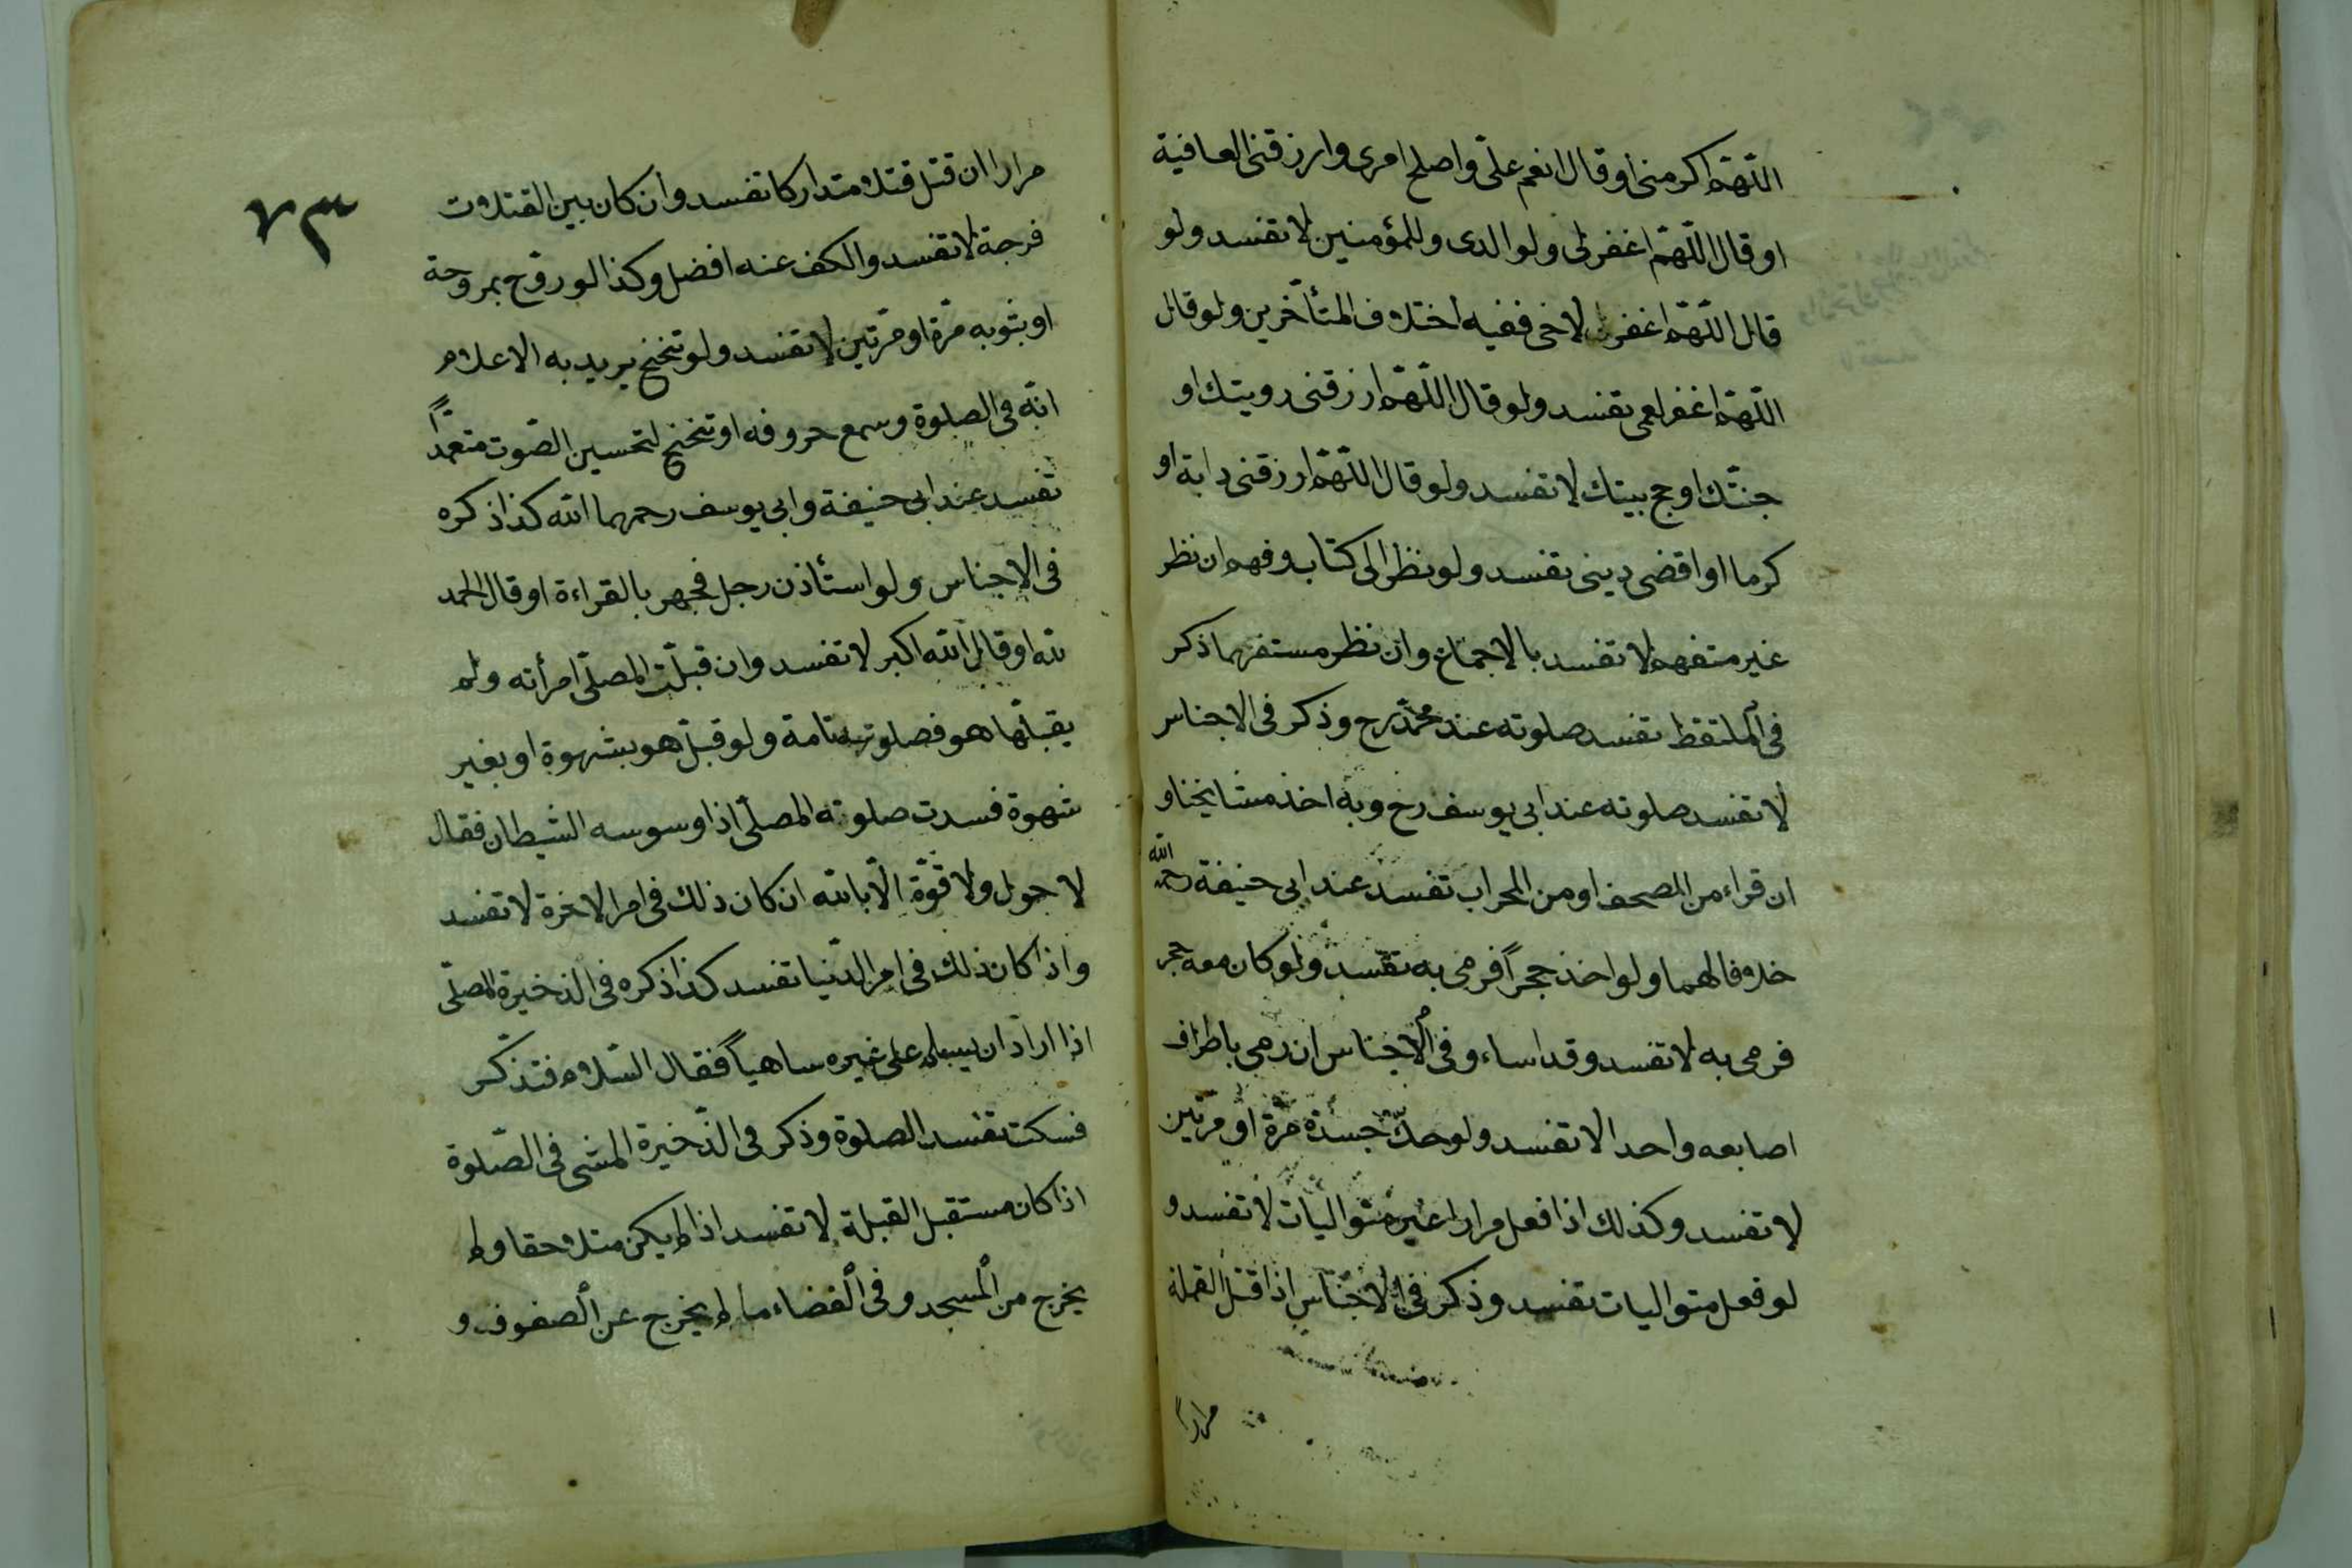 اللّهمّ اكرمنى او قال انعم علىّ واصلح امرى وارزقنى العافية
او قال اللّهمّ اغفرلى ولوالدى وللمؤمنين لا تفسد ولو
قال اللّهمّ اغفر لاخى ففيه اختلاف المتأخّرين ولو قال
اللّهمّ اغفر لعمى تفسد ولو قال اللّهمّ ارزقنى رويتك او
جنّتك او حج بيتك لا تفسد ولو قال اللّهمّ ارزقنى دابة او
كرما او اقضى دينى تفسد ولو نظر الى كتاب وفهم ان نظر
غير متفهم لا تفسد بالاجماع وان نظر مستفهما ذكر
فى الملتقط تفسد صلوته عند محمّد رح وذكر فى الاجناس
لا تفسد صلوته عند ابى يوسف رح وبه اخذ مشايخنا و
ان قراء من المصحف او من المحراب تفسد عند ابى حنيفة رحمه الله
خلافا لهما ولو اخذ حجراً فرمى به تفسد ولو كان معه حجر
فرمى به لا تفسد وقد اساء وفى الاجناس ان رمى باطراف
اصابعه واحدا لا تفسد ولو حكّ جسده مرّة او مرّتين
لا تفسد وكذلك اذا فعل مرارا غير متواليات لا تفسد و
لو فعل متواليات تفسد وذكر فى الاجناس اذا قتل القملة
مرارا
٧٣
مرارا ان قتل قتلا متداركا تفسد وان كان بين القتلات
فرجة لا تفسد والكف عنه افضل وكذا لو روّح بمروحة
او بثوبه مرّة او مرّتين لا تفسد ولو تنحنح يريد به الاعلام
انّه فى الصلوة وسمع حروفه او تنحنح لتحسين الصّوت متعمّداً
تفسد عند ابى حنيفة وابى يوسف رحمهما الله كذا ذكره
فى الاجناس ولو استأذن رجل فجهر بالقراءة او قال الحمد
لله او قال الله اكبر لا تفسد وان قبلّت المصلّى امرأته ولم
يقبلّها هو فصلوته تامة ولو قبلّ هو بشهوة او بغير
شهوة فسدت صلوته المصلّى اذا وسوسه الشيطان فقال
لا حول ولا قوّة الّا بالله ان كان ذلك فى امر الاخرة لا تفسد
واذا كان ذلك فى امر الدّنيا تفسد كذا ذكره فى الذخيرة المصلّى
اذا اراد ان يسلم على غيره ساهياً فقال السّلام فتذكّر
فسكت تفسد الصلوة وذكر فى الذّخيرة المشى فى الصّلوة
اذا كان مستقبل القبلة لا تفسد اذا لم يكن متلاحقا ولم
يخرج من المسجد وفى الفضاء ما لم يخرج عن الصفوف و